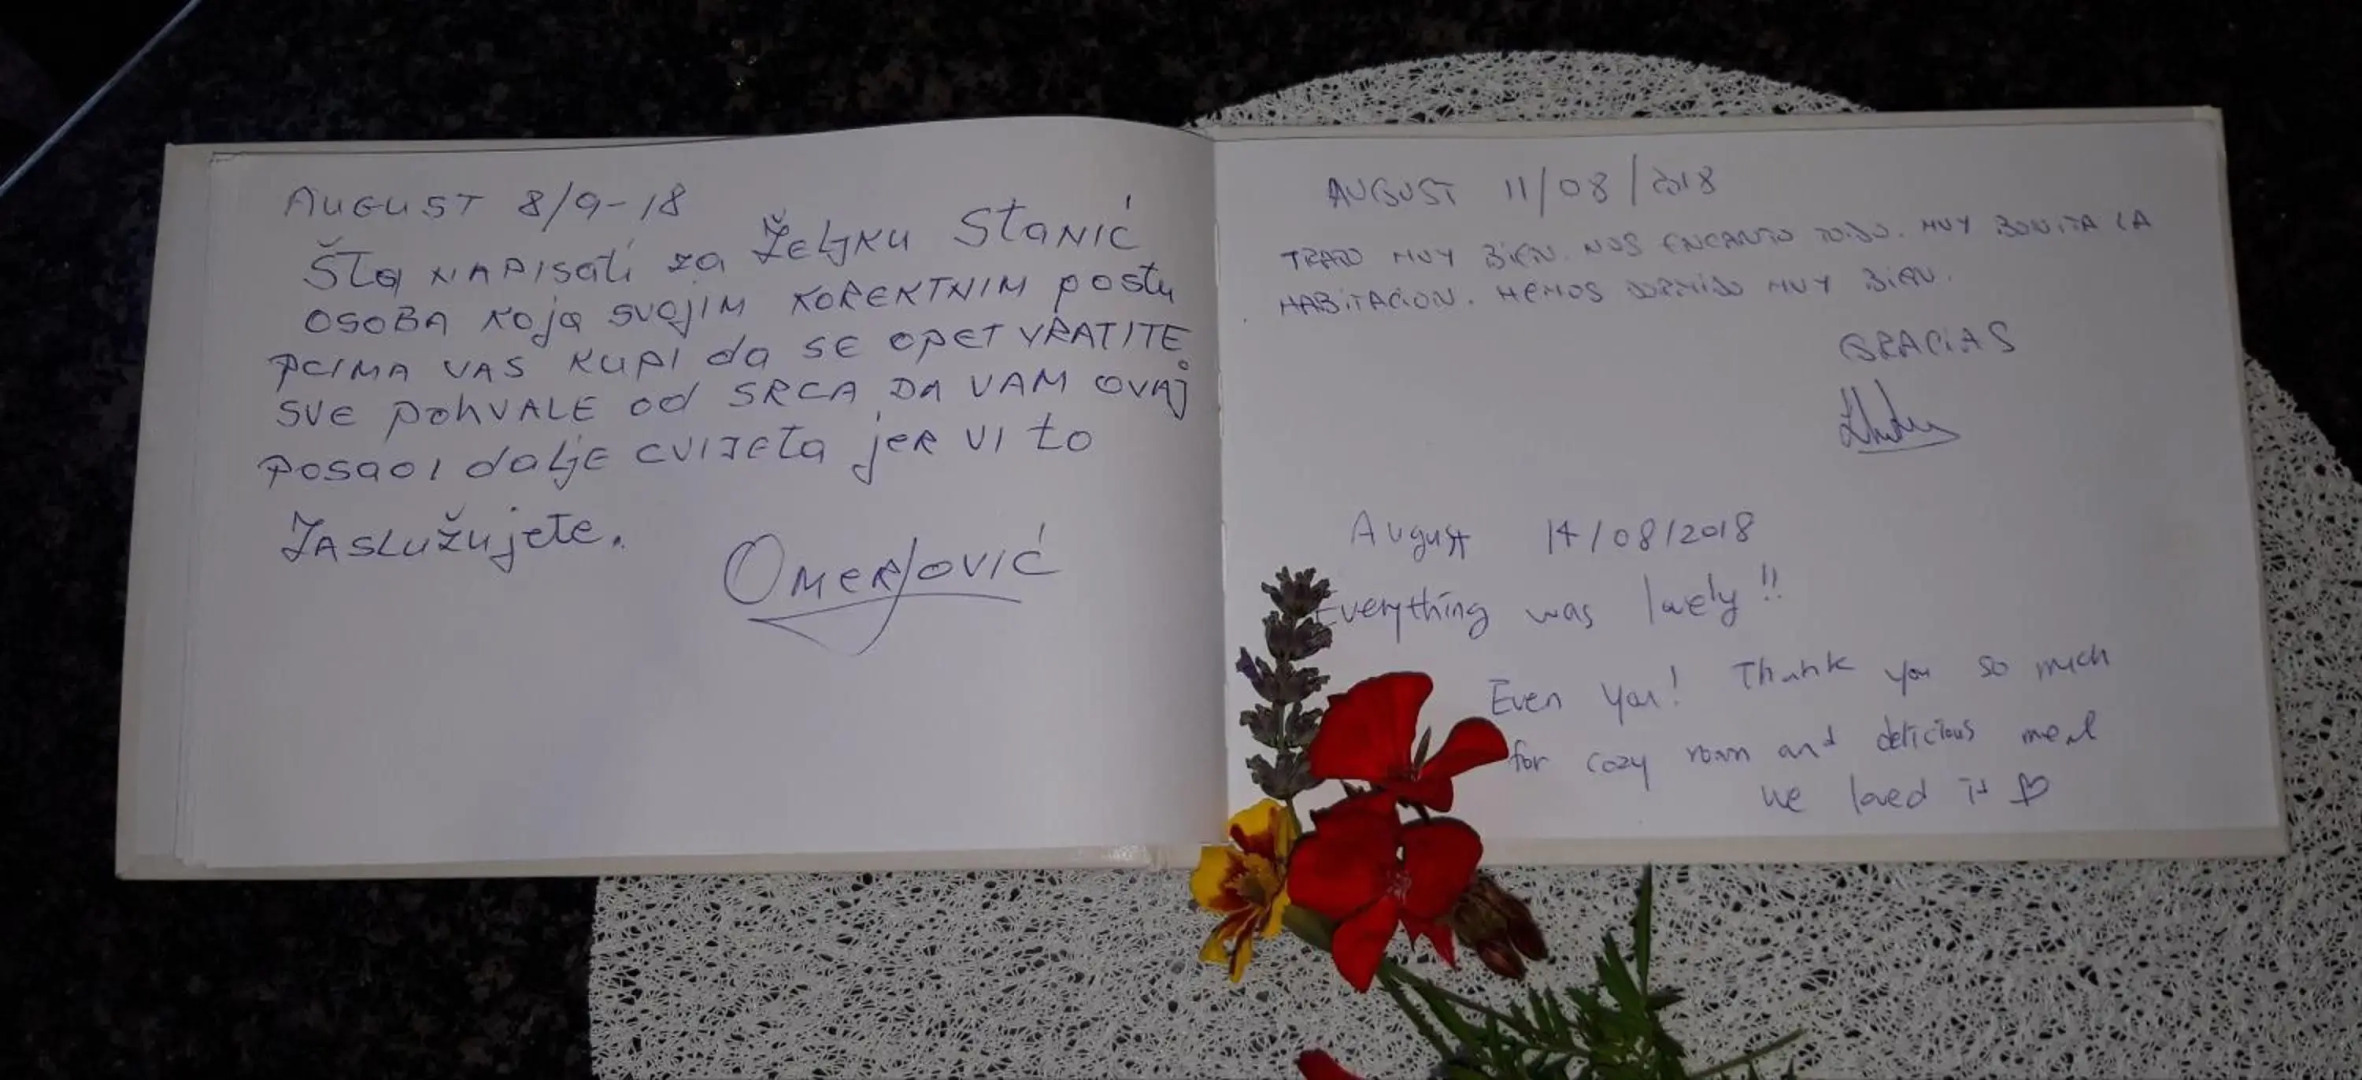 AUGUST 8/9-18
Šta NAPISati za ŽELJKU StaNIĆ
OSOBA Koja svojim KOREKTNIM postu
PCIMA VAS KUPI da SE OPET VRATITE
SVE pohVALE od SRCA DA VAM OVAJ
POSAO I dalje CVIJETa jER VI to
ZASLUŽUjETE.
OMEROVIĆ
AUGUST 11/08/2018
TRATO MUY BIEN. NOS ENCANTO TODO. MUY BONITA LA
HABITACION. HEMOS DORMIDO MUY BIEN.
GRACIAS
August 14/08/2018
Everything was lovely!!
Even You! Thank you so much
for cozy room and delicious meal
We loved it ♡